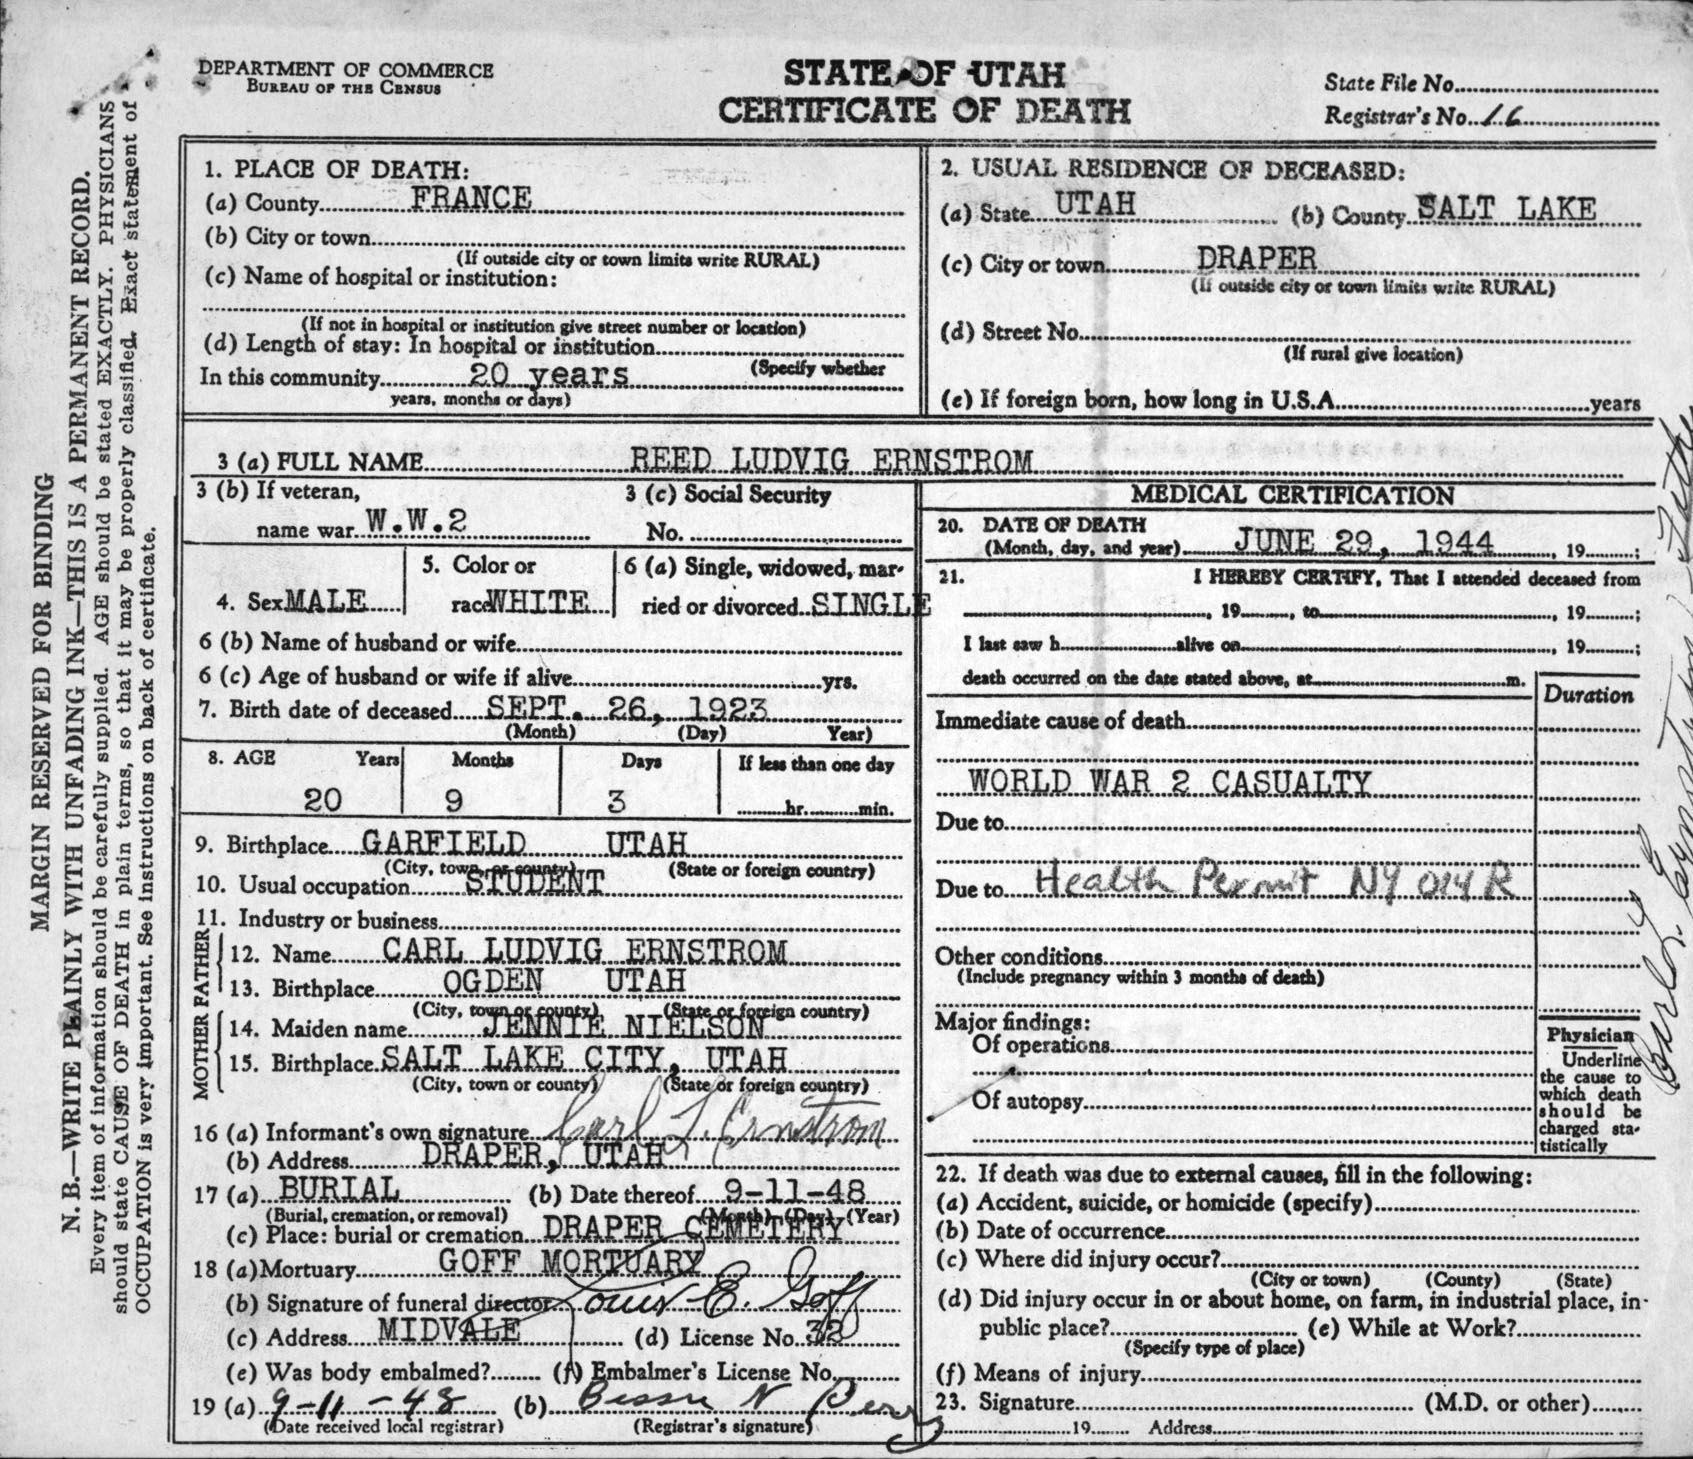 DEPARTMENT OF COMMERCE
BUREAU OF THE CENSUS
STATE OF UTAH
CERTIFICATE OF DEATH
State File No.
Registrar's No. 16
MARGIN RESERVED FOR BINDING
N. B.—WRITE PLAINLY WITH UNFADING INK—THIS IS A PERMANENT RECORD.
Every item of information should be carefully supplied. AGE should be stated EXACTLY. PHYSICIANS
should state CAUSE OF DEATH in plain terms, so that it may be properly classified. Exact statement of
OCCUPATION is very important. See instructions on back of certificate.
1. PLACE OF DEATH:
(a) County FRANCE
(b) City or town
(If outside city or town limits write RURAL)
(c) Name of hospital or institution:
(If not in hospital or institution give street number or location)
(d) Length of stay: In hospital or institution
(Specify whether
In this community 20 years
years, months or days)
2. USUAL RESIDENCE OF DECEASED:
(a) State UTAH (b) County SALT LAKE
(c) City or town DRAPER
(If outside city or town limits write RURAL)
(d) Street No.
(If rural give location)
(e) If foreign born, how long in U.S.A. years
3 (a) FULL NAME REED LUDVIG ERNSTROM
3 (b) If veteran,
name war W.W.2
3 (c) Social Security
No.
4. Sex MALE
5. Color or
race WHITE
6 (a) Single, widowed, mar-
ried or divorced SINGLE
6 (b) Name of husband or wife
6 (c) Age of husband or wife if alive yrs.
7. Birth date of deceased SEPT. 26, 1923
(Month) (Day) Year)
8. AGE Years Months Days If less than one day
20 9 3 hr. min.
9. Birthplace GARFIELD UTAH
(City, town, or county) (State or foreign country)
10. Usual occupation STUDENT
11. Industry or business
FATHER
12. Name CARL LUDVIG ERNSTROM
13. Birthplace OGDEN UTAH
(City, town or county) (State or foreign country)
MOTHER
14. Maiden name JENNIE NIELSON
15. Birthplace SALT LAKE CITY, UTAH
(City, town or county) (State or foreign country)
16 (a) Informant's own signature Carl L. Ernstrom
(b) Address DRAPER, UTAH
17 (a) BURIAL (b) Date thereof 9-11-48
(Burial, cremation, or removal) (Month) (Day) (Year)
(c) Place: burial or cremation DRAPER CEMETERY
18 (a) Mortuary GOFF MORTUARY
(b) Signature of funeral director Louis E. Goff
(c) Address MIDVALE (d) License No. 32
(e) Was body embalmed? (f) Embalmer's License No.
19 (a) 9-11-48 (b) Bessie N
(Date received local registrar) (Registrar's signature)
MEDICAL CERTIFICATION
20. DATE OF DEATH
(Month, day, and year) JUNE 29, 1944, 19 ;
21. I HEREBY CERTIFY, That I attended deceased from
, 19 , to , 19 ;
I last saw h alive on , 19 ;
death occurred on the date stated above, at m.
Duration
Immediate cause of death
WORLD WAR 2 CASUALTY
Due to
Due to Health Permit NY 014 R
Other conditions
(Include pregnancy within 3 months of death)
Major findings:
Of operations
Of autopsy
Physician
Underline
the cause to
which death
should be
charged sta-
tistically
22. If death was due to external causes, fill in the following:
(a) Accident, suicide, or homicide (specify)
(b) Date of occurrence
(c) Where did injury occur?
(City or town) (County) (State)
(d) Did injury occur in or about home, on farm, in industrial place, in
public place? (e) While at Work?
(Specify type of place)
(f) Means of injury
23. Signature (M.D. or other)
19 Address
Carl L. Ernstrom